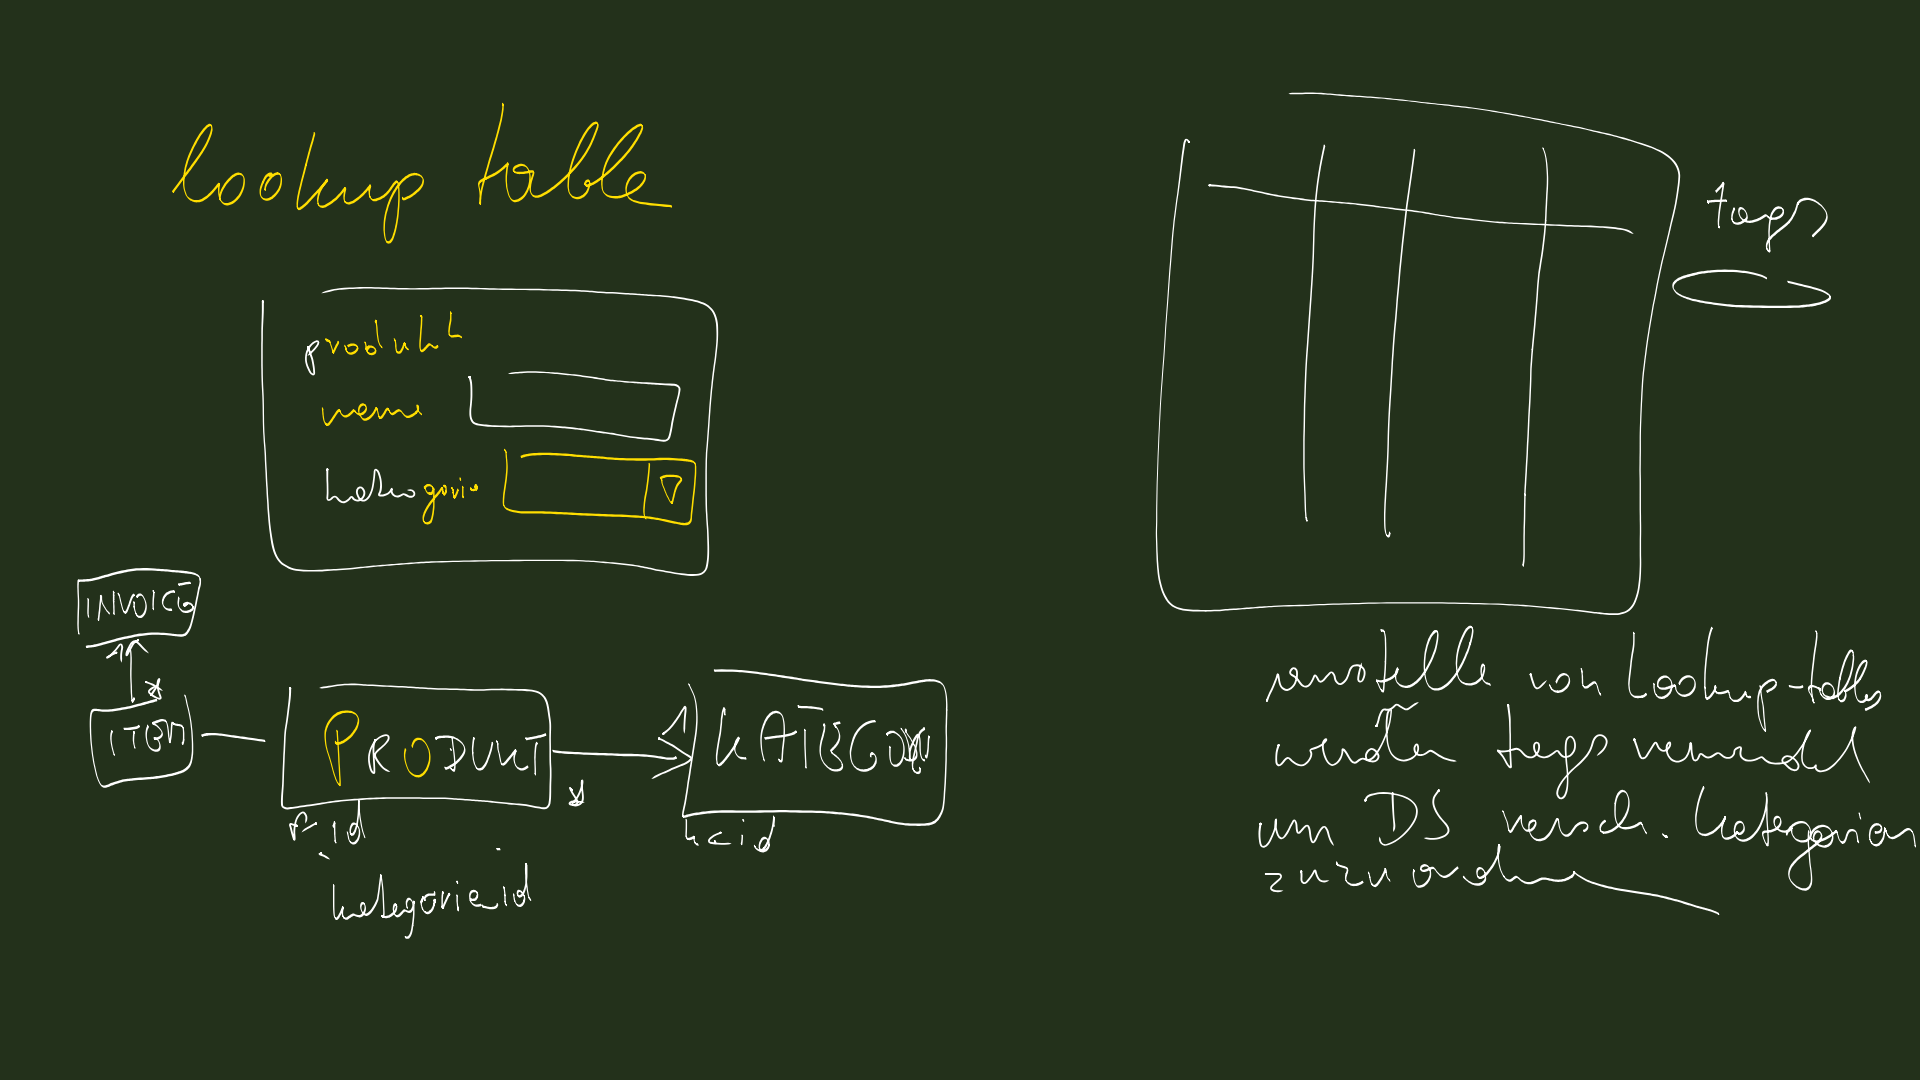 lookup table
produkt
name
kategorie
INVOICE
1
*
ITEM
PRODUKT
1
KATEGORI
*
id
katid
kategorie_id
tags
anstelle von Lookup-tables
werden tags verwendet
um DS versch. kategorien
zuzuordnen